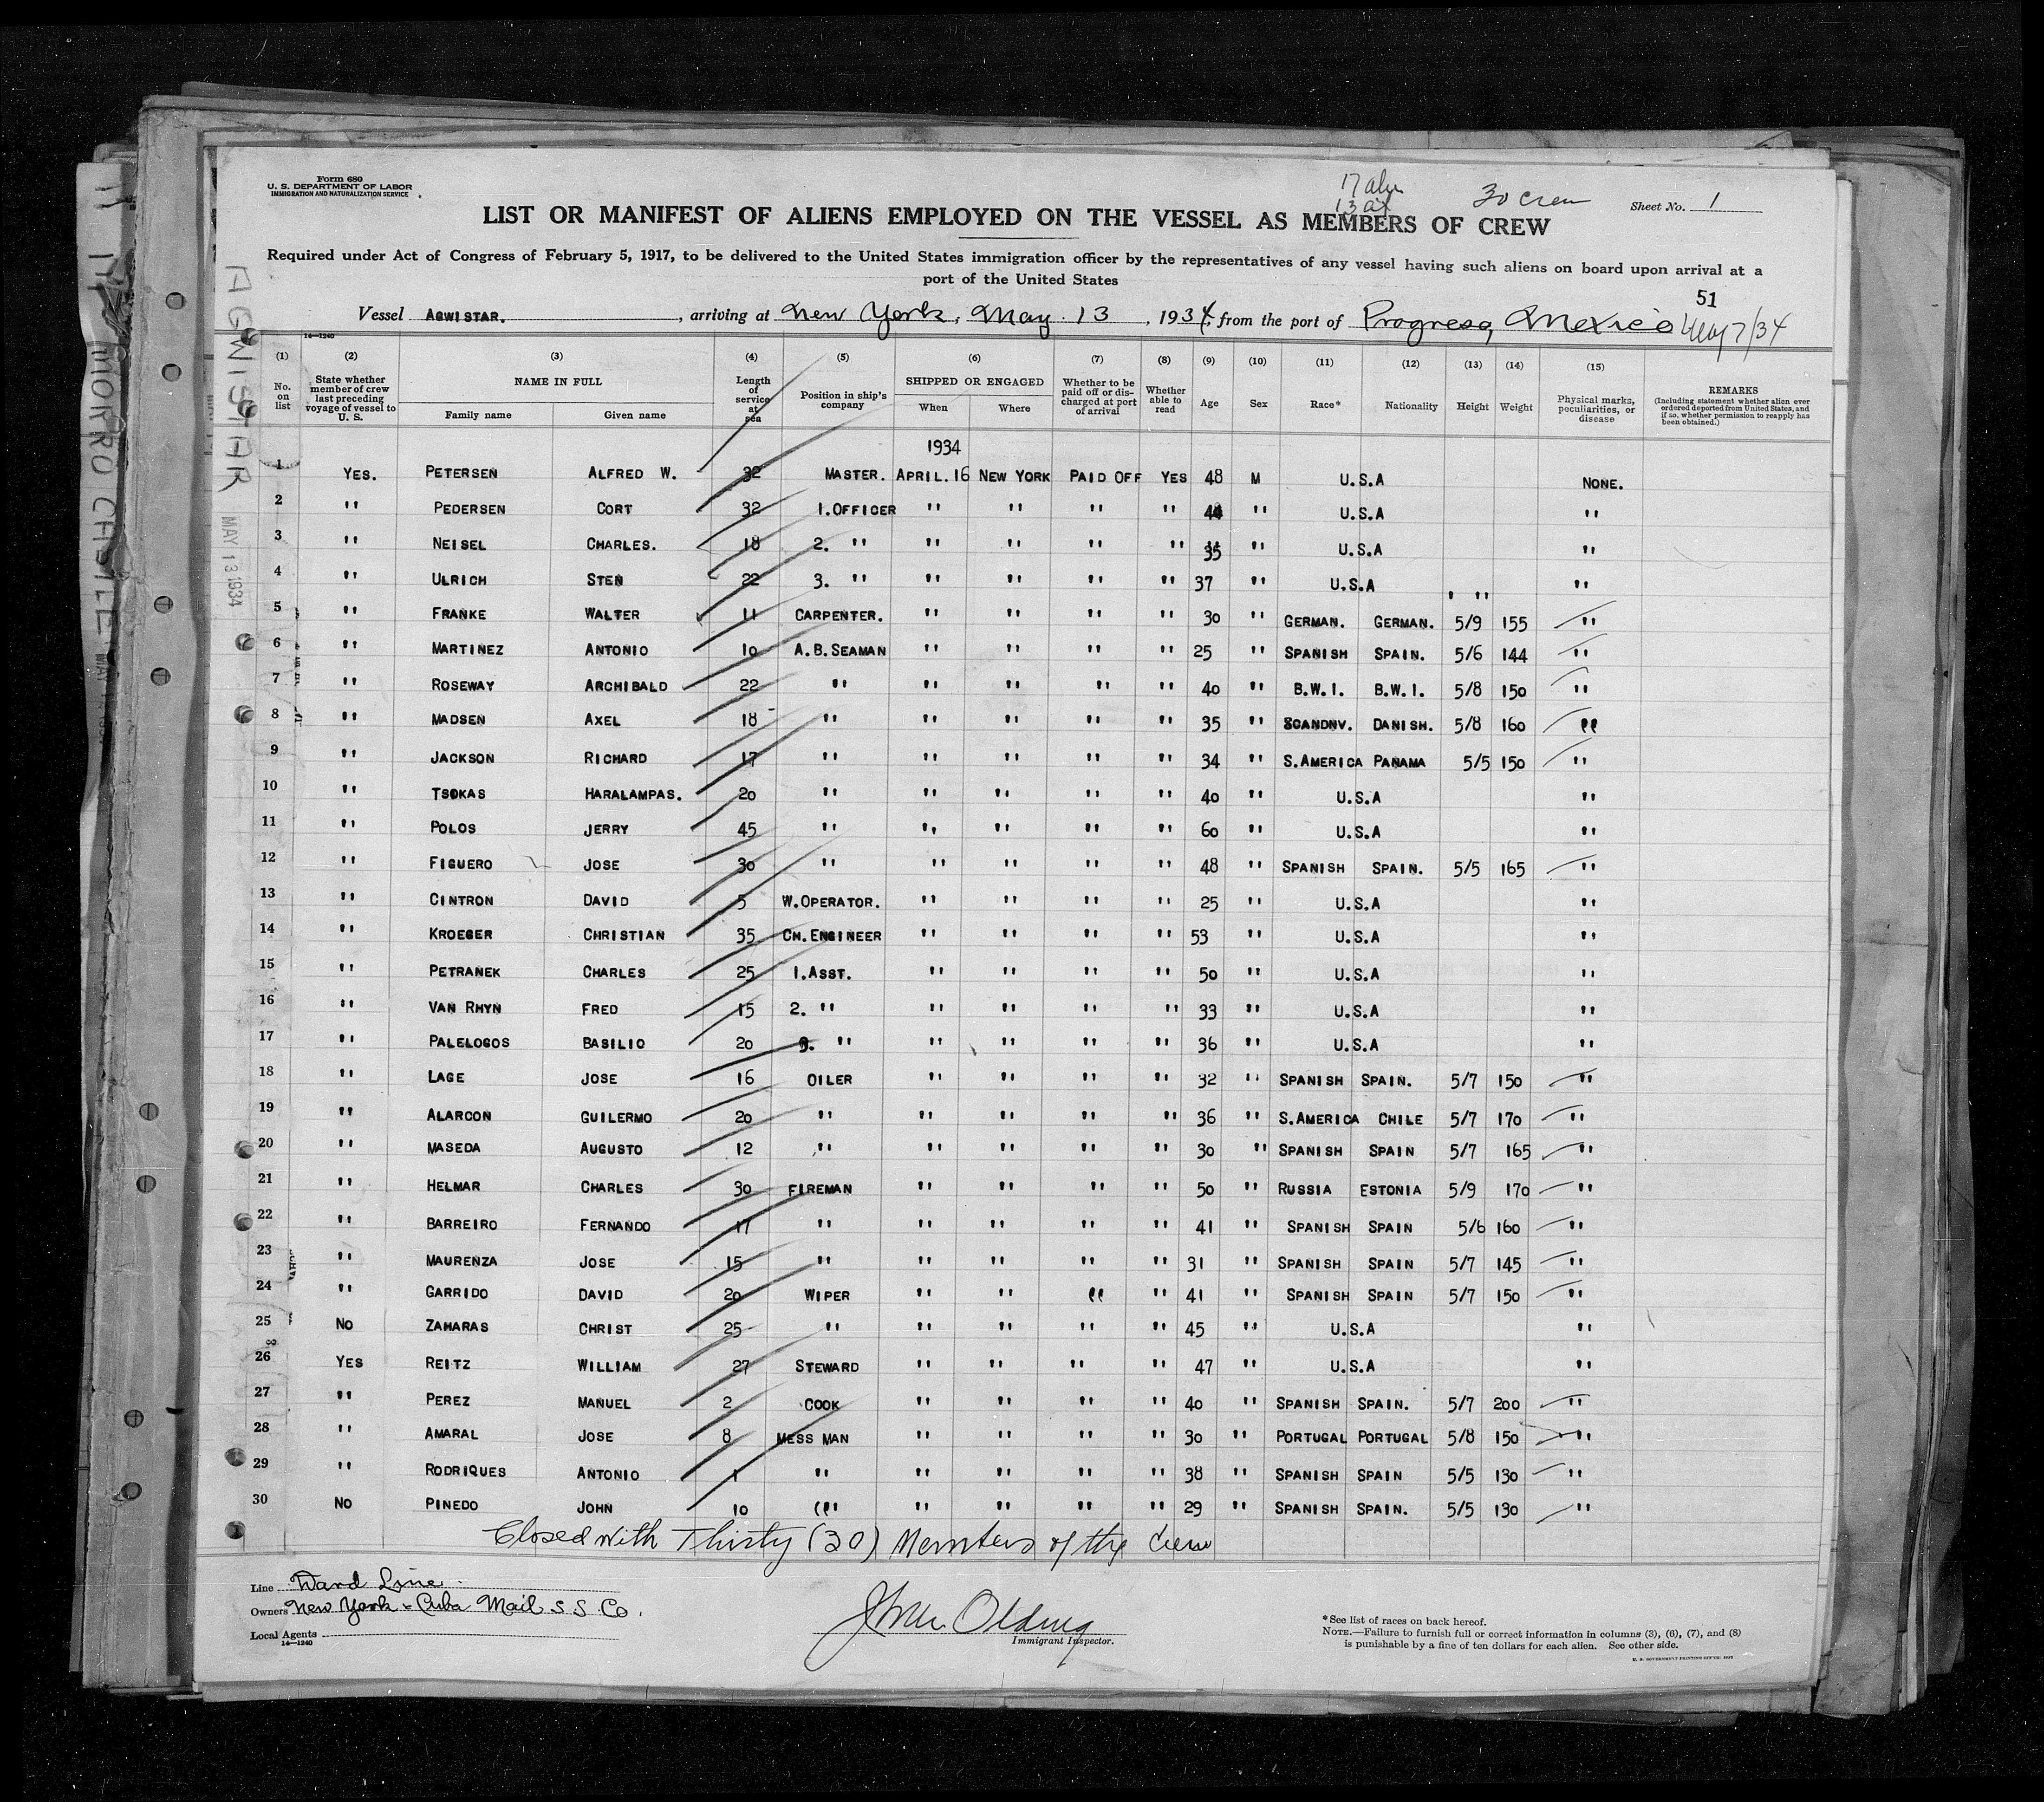 Form 680
U. S. DEPARTMENT OF LABOR
IMMIGRATION AND NATURALIZATION SERVICE
17 alн
13 at
30 crew
Sheet No. 1
LIST OR MANIFEST OF ALIENS EMPLOYED ON THE VESSEL AS MEMBERS OF CREW
Required under Act of Congress of February 5, 1917, to be delivered to the United States immigration officer by the representatives of any vessel having such aliens on board upon arrival at a
port of the United States
51
Vessel AGWISTAR. , arriving at New York, May 13 , 1934, from the port of Progreso, Mexico May 7/34
14—1240
(1) (2) (3) (4) (5) (6) (7) (8) (9) (10) (11) (12) (13) (14) (15)
No. on list State whether member of crew last preceding voyage of vessel to U. S. NAME IN FULL Family name Given name Length of service at sea Position in ship's company SHIPPED OR ENGAGED When Where Whether to be paid off or discharged at port of arrival Whether able to read Age Sex Race* Nationality Height Weight Physical marks, peculiarities, or disease REMARKS (Including statement whether alien ever ordered deported from United States, and if so, whether permission to reapply has been obtained.)
1934
1 YES. PETERSEN ALFRED W. 32 MASTER. APRIL. 16 NEW YORK PAID OFF YES 48 M U.S.A NONE.
2 " PEDERSEN CORT 32 1. OFFICER " " " " 44 " U.S.A "
3 " NEISEL CHARLES. 18 2. " " " " " 35 " U.S.A "
4 " ULRICH STEN 22 3. " " " " " 37 " U.S.A "
5 " FRANKE WALTER 11 CARPENTER. " " " " 30 " GERMAN. GERMAN. 5/9 155 "
6 " MARTINEZ ANTONIO 10 A.B. SEAMAN " " " " 25 " SPANISH SPAIN. 5/6 144 "
7 " ROSEWAY ARCHIBALD 22 " " " " " 40 " B.W.I. B.W.I. 5/8 150 "
8 " MADSEN AXEL 18 " " " " " 35 " SCANDNV. DANISH. 5/8 160 "
9 " JACKSON RICHARD 17 " " " " " 34 " S.AMERICA PANAMA 5/5 150 "
10 " TSOKAS HARALAMPAS. 20 " " " " " 40 " U.S.A "
11 " POLOS JERRY 45 " " " " " 60 " U.S.A "
12 " FIGUERO JOSE 30 " " " " " 48 " SPANISH SPAIN. 5/5 165 "
13 " CINTRON DAVID 5 W. OPERATOR. " " " " 25 " U.S.A "
14 " KROEGER CHRISTIAN 35 CH. ENGINEER " " " " 53 " U.S.A "
15 " PETRANEK CHARLES 25 1. ASST. " " " " 50 " U.S.A "
16 " VAN RHYN FRED 15 2. " " " " " 33 " U.S.A "
17 " PALELOGOS BASILIO 20 3. " " " " " 36 " U.S.A "
18 " LAGE JOSE 16 OILER " " " " 32 " SPANISH SPAIN. 5/7 150 "
19 " ALARCON GUILERMO 20 " " " " " 36 " S.AMERICA CHILE 5/7 170 "
20 " MASEDA AUGUSTO 12 " " " " " 30 " SPANISH SPAIN 5/7 165 "
21 " HELMAR CHARLES 30 FIREMAN " " " " 50 " RUSSIA ESTONIA 5/9 170 "
22 " BARREIRO FERNANDO 17 " " " " " 41 " SPANISH SPAIN 5/6 160 "
23 " MAURENZA JOSE 15 " " " " " 31 " SPANISH SPAIN 5/7 145 "
24 " GARRIDO DAVID 20 WIPER " " " " 41 " SPANISH SPAIN 5/7 150 "
25 NO ZAHARAS CHRIST 25 " " " " " 45 " U.S.A "
26 YES REITZ WILLIAM 27 STEWARD " " " " 47 " U.S.A "
27 " PEREZ MANUEL 2 COOK " " " " 40 " SPANISH SPAIN. 5/7 200 "
28 " AMARAL JOSE 8 MESS MAN " " " " 30 " PORTUGAL PORTUGAL 5/8 150 "
29 " RODRIQUES ANTONIO 1 " " " " " 38 " SPANISH SPAIN 5/5 130 "
30 NO PINEDO JOHN 10 " " " " " 29 " SPANISH SPAIN. 5/5 130 "
Closed with Thirty (30) Members of the Crew
Line Ward Line.
Owners New York - Cuba Mail S S Co.
Local Agents
14—1240
Olding
Immigrant Inspector.
*See list of races on back hereof.
NOTE.—Failure to furnish full or correct information in columns (3), (6), (7), and (8)
is punishable by a fine of ten dollars for each alien. See other side.
AGWISTAR MAY 13 1934
MORRO CASTLE